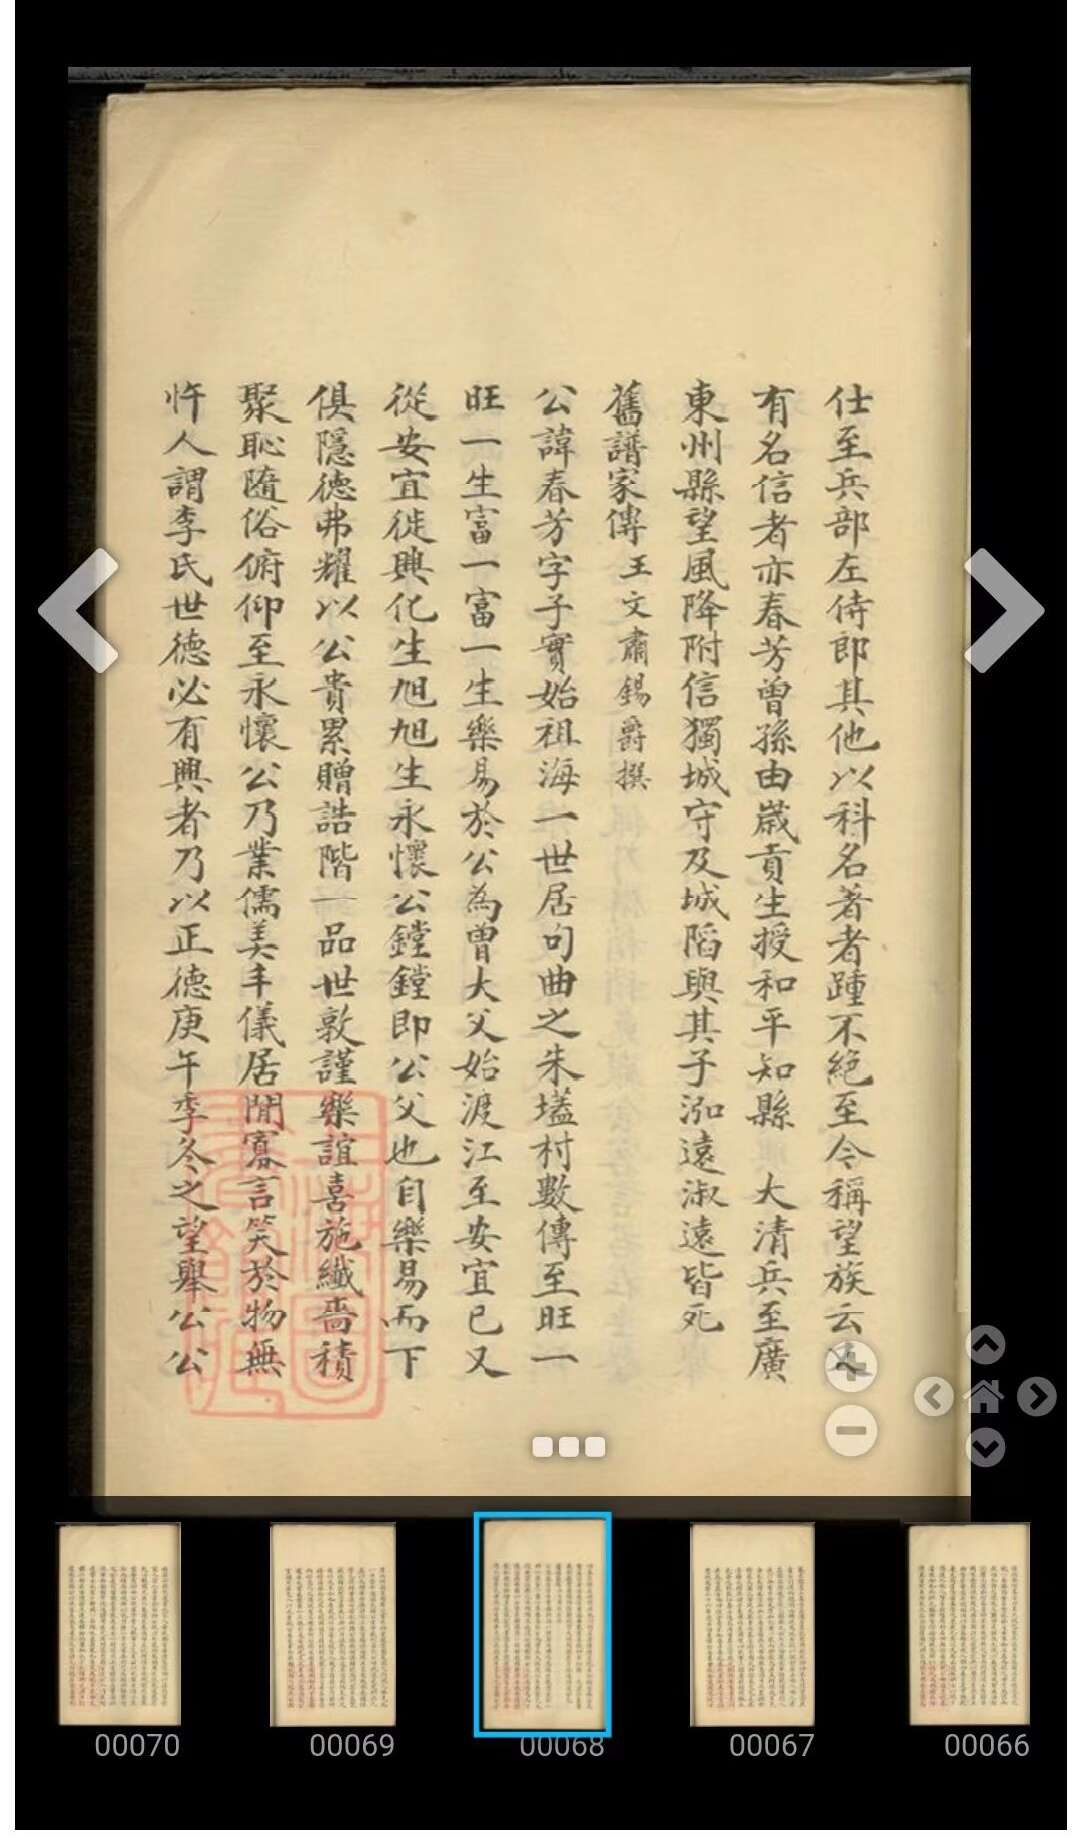 仕至兵部左侍郎其他以科名著者踵不絕至今稱望族云又
有名信者亦春芳曾孫由歲貢生授和平知縣　大清兵至廣
東州縣望風降附信獨城守及城陷與其子泓遠淑遠皆死
舊譜家傳 王文肅錫爵撰
公諱春芳字子實始祖海一世居句曲之朱墟村數傳至旺一
旺一生富一富一生樂易於公為曾大父始渡江至安宜已又
從安宜徙興化生旭旭生永懷公鏜鏜即公父也自樂易而下
俱隱德弗耀以公貴累贈誥階一品世敦謹樂誼喜施纖嗇積
聚恥隨俗俯仰至永懷公乃業儒美丰儀居閒寡言笑於物無
忤人謂李氏世德必有興者乃以正德庚午季冬之望舉公公
00070
00069
00068
00067
00066